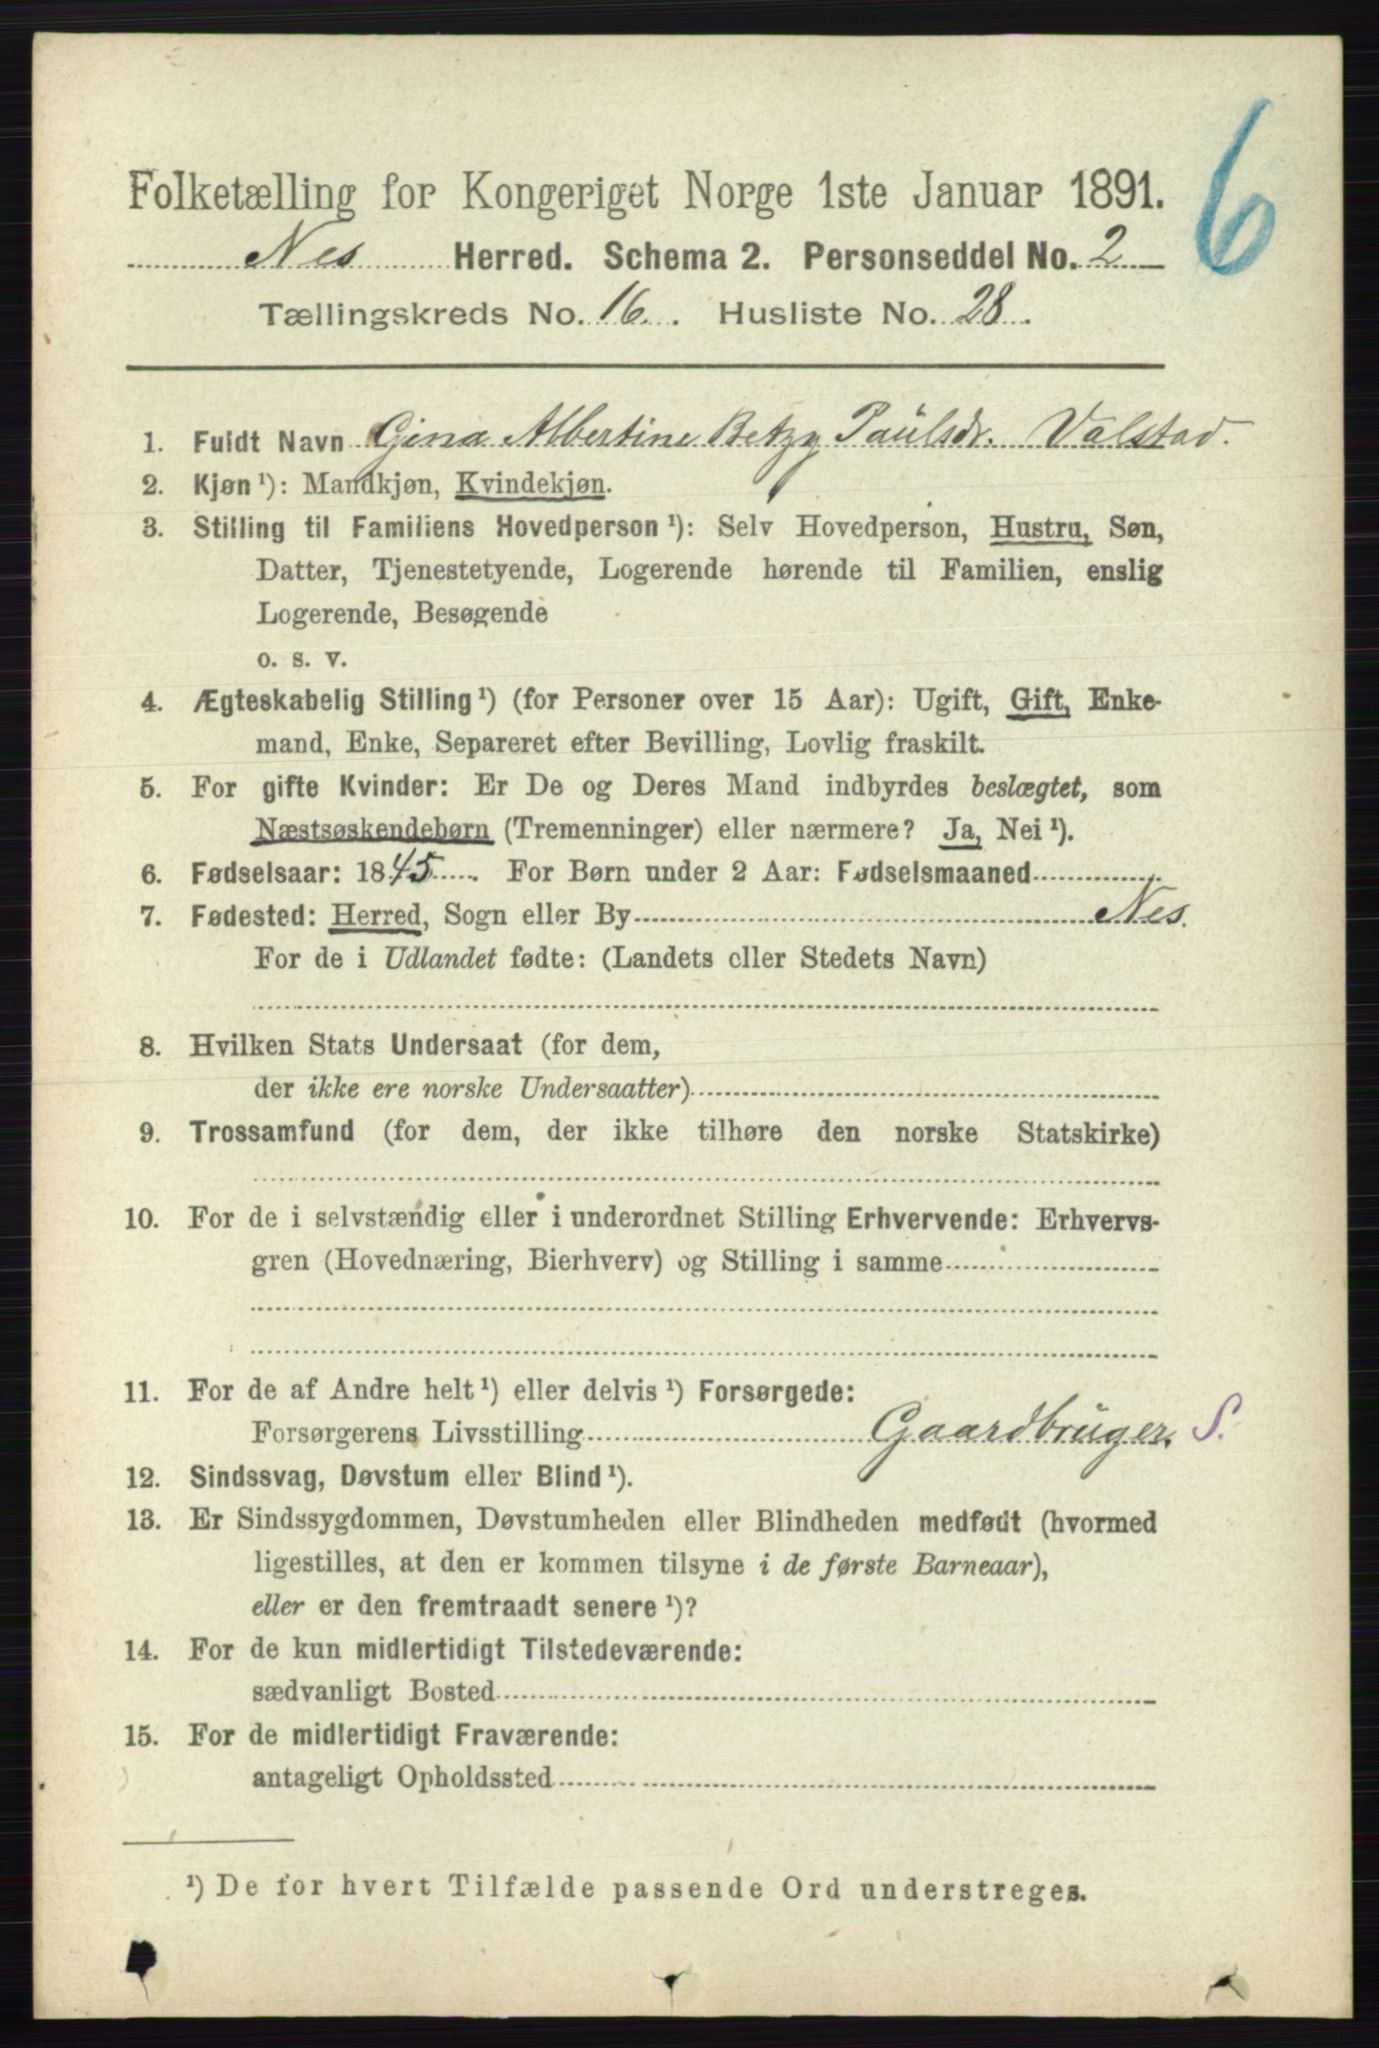 6
Folketælling for Kongeriget Norge 1ste Januar 1891.
Nes Herred. Schema 2. Personseddel No. 2
Tællingskreds No. 16. Husliste No. 28.
1. Fuldt Navn Gina Albertine Betzy Paulsdr. Valstad.
2. Kjøn¹): Mandkjøn, Kvindekjøn.
3. Stilling til Familiens Hovedperson¹): Selv Hovedperson, Hustru, Søn,
Datter, Tjenestetyende, Logerende hørende til Familien, enslig
Logerende, Besøgende
o. s. v.
4. Ægteskabelig Stilling¹) (for Personer over 15 Aar): Ugift, Gift, Enke-
mand, Enke, Separeret efter Bevilling, Lovlig fraskilt.
5. For gifte Kvinder: Er De og Deres Mand indbyrdes beslægtet, som
Næstsøskendebørn (Tremenninger) eller nærmere? Ja, Nei¹).
6. Fødselsaar: 1845. For Børn under 2 Aar: Fødselsmaaned
7. Fødested: Herred, Sogn eller By Nes.
For de i Udlandet fødte: (Landets eller Stedets Navn)
8. Hvilken Stats Undersaat (for dem,
der ikke ere norske Undersaatter)
9. Trossamfund (for dem, der ikke tilhøre den norske Statskirke)
10. For de i selvstændig eller i underordnet Stilling Erhvervende: Erhvervs-
gren (Hovednæring, Bierhverv) og Stilling i samme
11. For de af Andre helt¹) eller delvis¹) Forsørgede:
Forsørgerens Livsstilling Gaardbruger. S.
12. Sindssvag, Døvstum eller Blind¹).
13. Er Sindssygdommen, Døvstumheden eller Blindheden medfødt (hvormed
ligestilles, at den er kommen tilsyne i de første Barneaar),
eller er den fremtraadt senere¹)?
14. For de kun midlertidigt Tilstedeværende:
sædvanligt Bosted
15. For de midlertidigt Fraværende:
antageligt Opholdssted
¹) De for hvert Tilfælde passende Ord understreges.